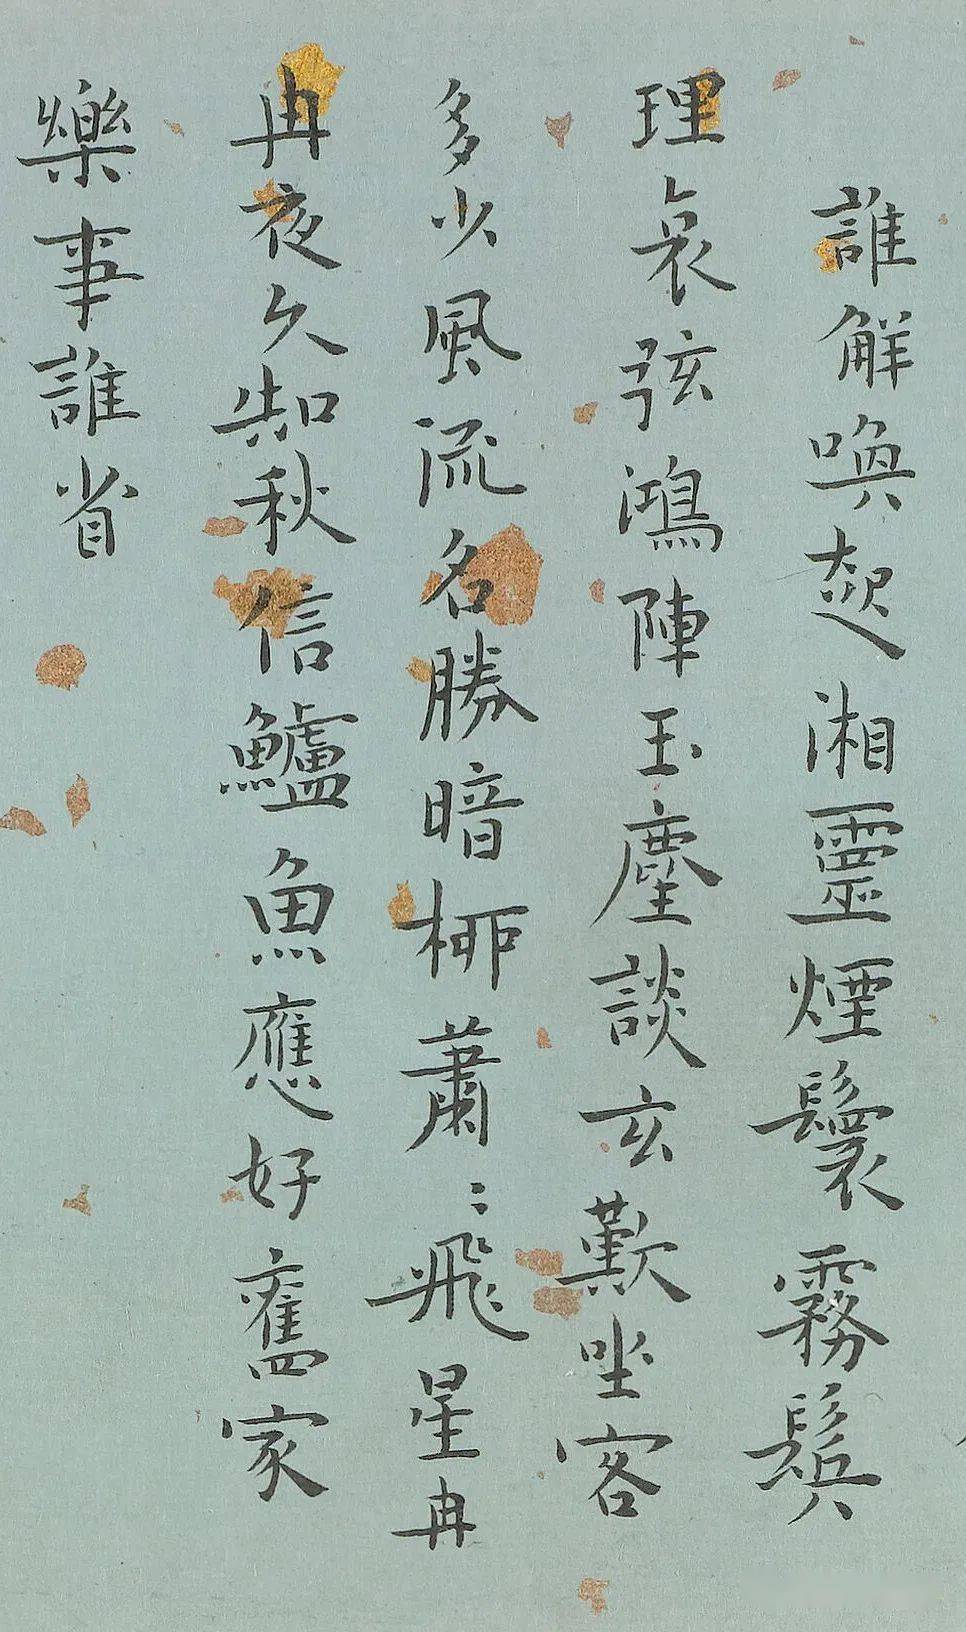 誰解喚起湘靈煙鬟霧鬢
理哀弦鴻陣玉麈談玄歎坐客
多少風流名勝暗柳蕭〻飛星冉
冉夜久知秋信鱸魚應好舊家
樂事誰省